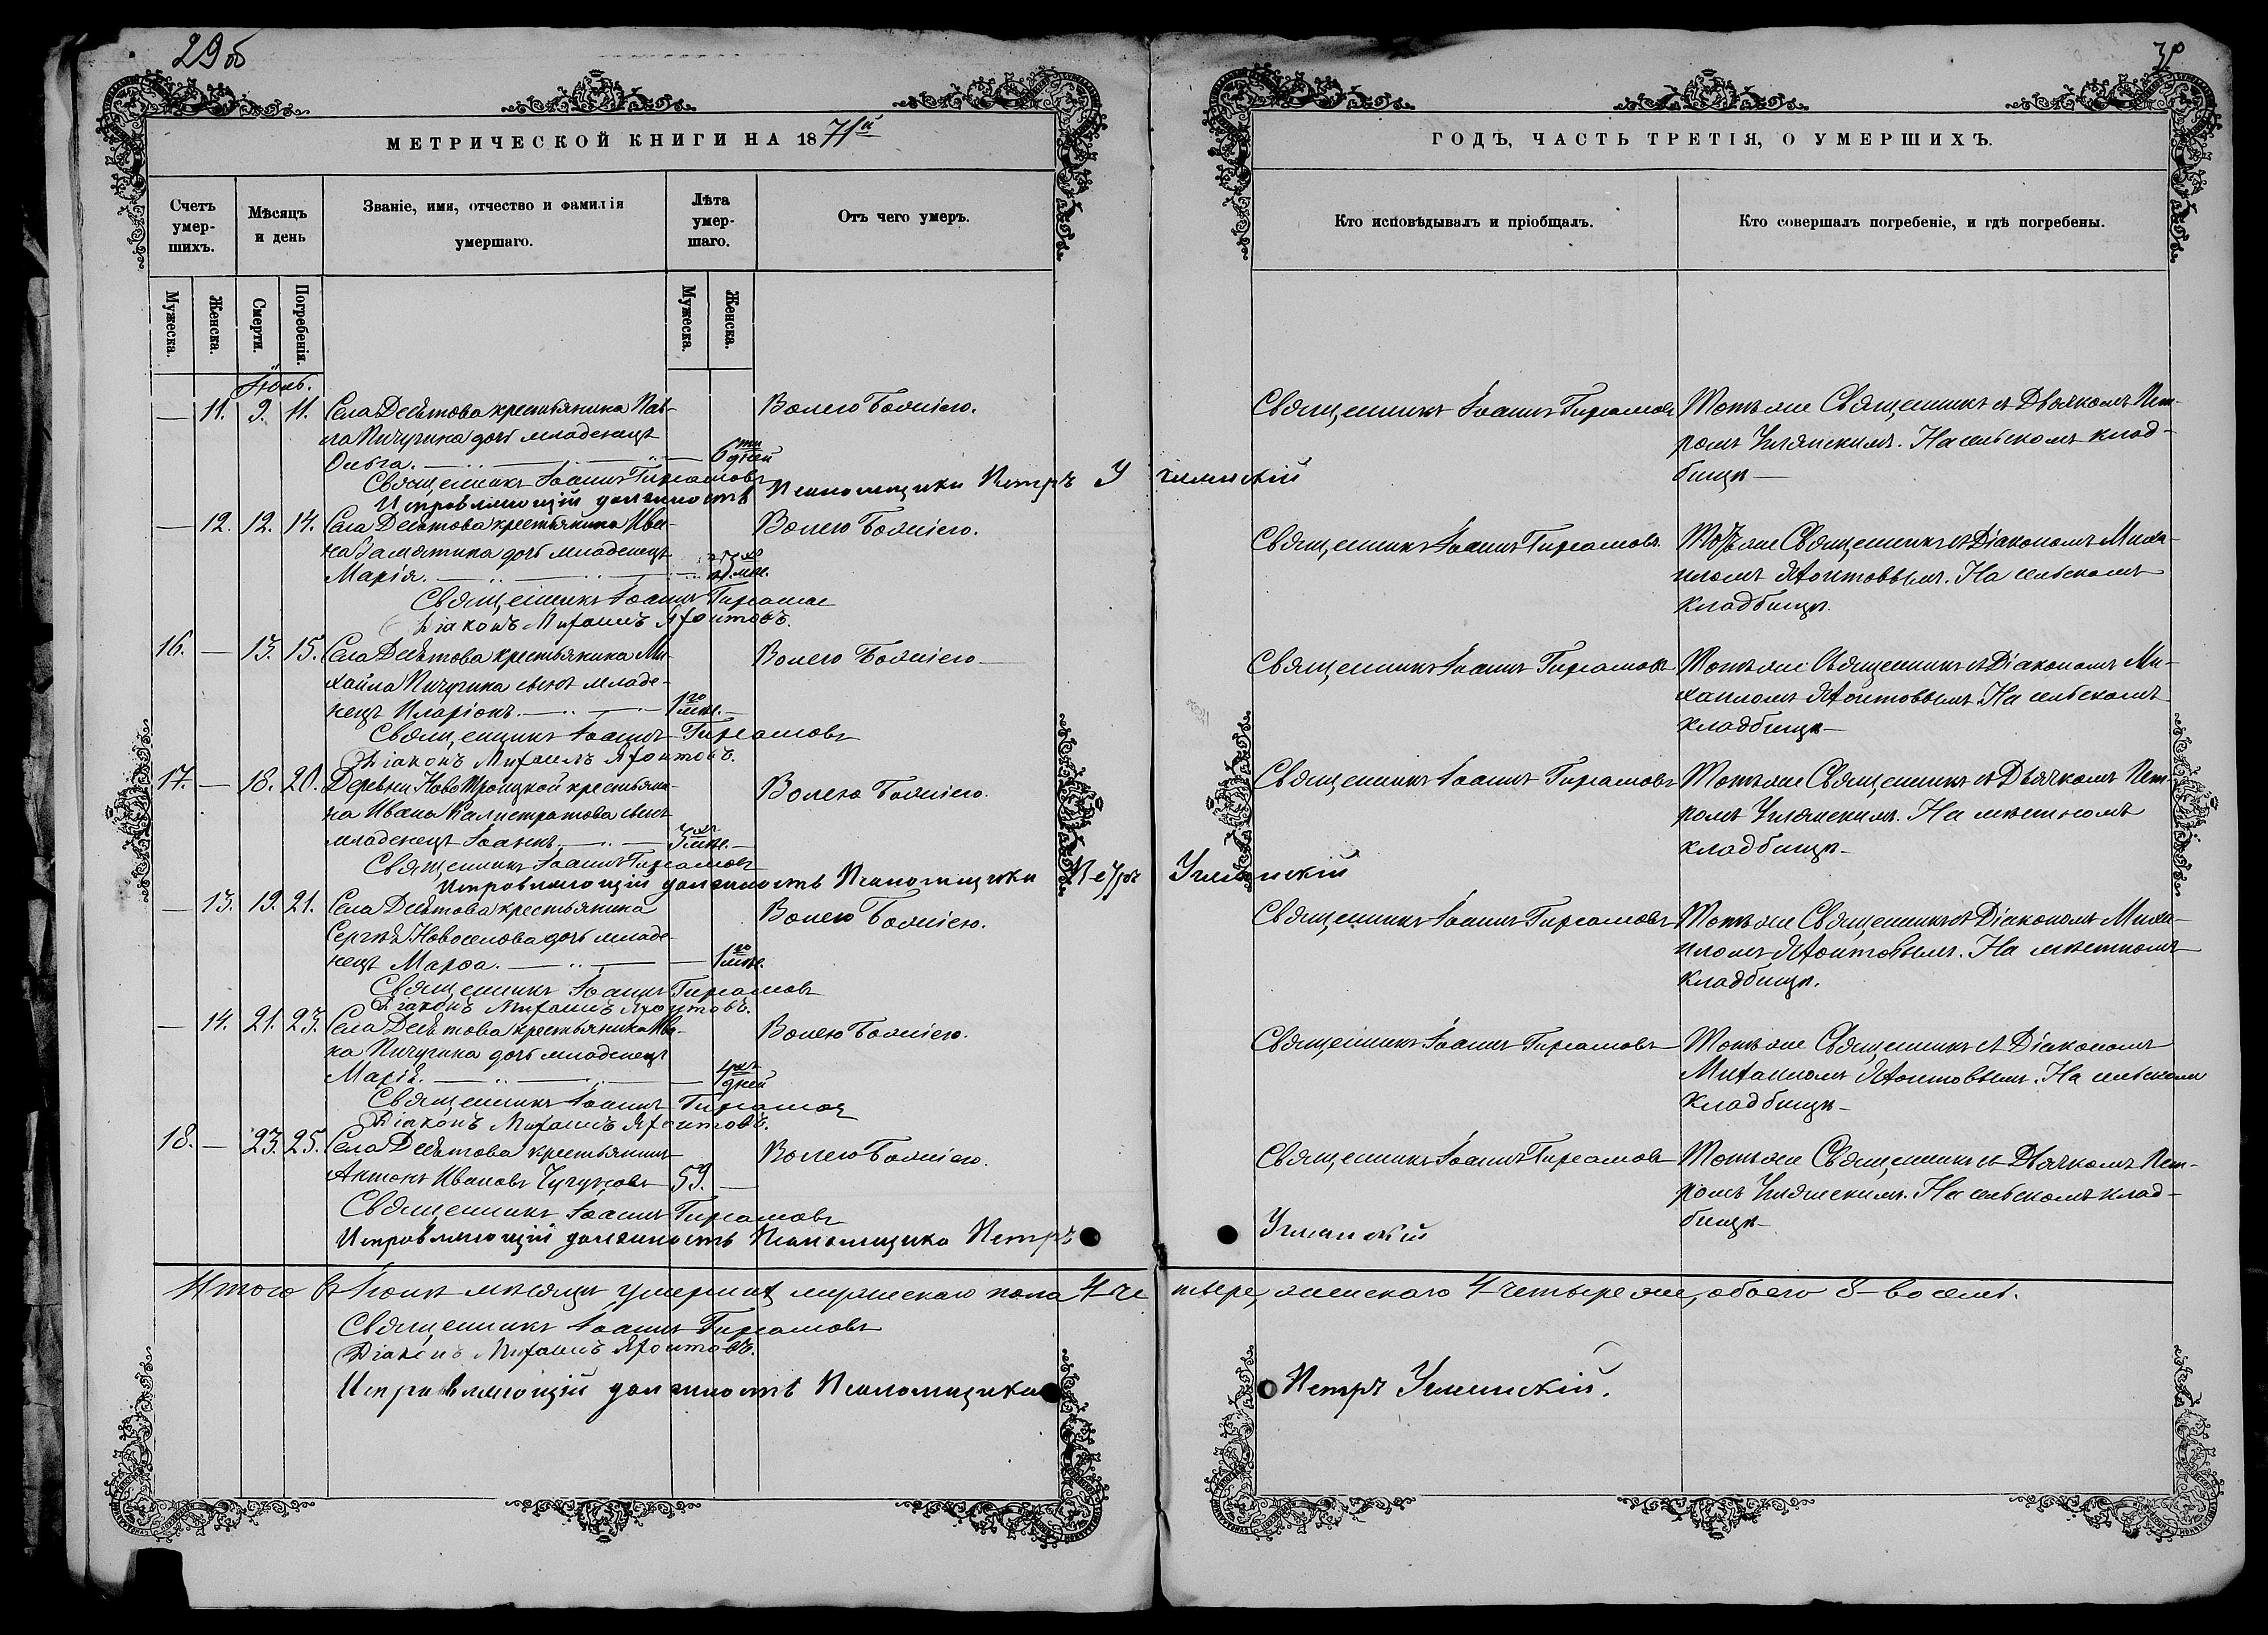 29 об
30
МЕТРИЧЕСКОЙ КНИГИ НА 1871й
ГОДЪ, ЧАСТЬ ТРЕТІЯ, О УМЕРШИХЪ.
Счетъ умер-шихъ.
Мѣсяцъ и день
Званіе, имя, отчество и фамилія умершаго.
Лѣта умер-шаго.
Отъ чего умеръ.
Кто исповѣдывалъ и пріобщалъ.
Кто совершалъ погребеніе, и гдѣ погребены.
Мужеска.
Женска.
Смерти.
Погребенія.
Мужеска.
Женска.
Іюль.
— 11. 9. 11. Села Десятова крестьянина Пав-
ла Пичугина дочь младенецъ
Ольга. — 6ти дней
Волею Божіею.
Священникъ Іоаннъ
Тотъ же Священникъ съ Дьячкомъ Пет-
ромъ. На сельскомъ клад-
бищѣ —
Священникъ Іоаннъ
Исправляющій должность Псаломщика Петръ
— 12. 12. 14. Села Десятова крестьянина Ива-
на Замятина дочь младенецъ
Марія. мѣс.
Волею Божіею.
Священникъ Іоаннъ
Тотъ же Священникъ съ Діакономъ Миха-
иломъ. На сельскомъ
кладбищѣ.
Священникъ Іоаннъ
Діаконъ Михаилъ
16. — 13. 15. Села Десятова крестьянина Ми-
хаила Пичугина сынъ младе-
нецъ Иларіонъ. — 1го мѣс. —
Волею Божіею —
Священникъ Іоаннъ
Тотъ же Священникъ съ Діакономъ Ми-
хаиломъ. На сельскомъ
кладбищѣ —
Священникъ Іоаннъ
Діаконъ Михаилъ
17. — 18. 20. Деревни НовоТроицкой крестьяни-
на Ивана Калистратова сынъ
младенецъ Іоаннъ. — 3хъ мѣс. —
Волею Божіею.
Священникъ Іоаннъ
Тотъ же Священникъ съ Дьячкомъ Пет-
ромъ. На мѣстномъ
кладбищѣ —
Священникъ Іоаннъ
Исправляющій должность Псаломщика Петръ
— 13. 19. 21. Села Десятова крестьянина
Сергѣя Новоселова дочь младе-
нецъ Марѳа. — 1го мѣс.
Волею Божіею.
Священникъ Іоаннъ
Тотъ же Священникъ съ Діакономъ Миха-
иломъ. На мѣстномъ
кладбищѣ.
Священникъ Іоаннъ
Діаконъ Михаилъ
— 14. 21. 23. Села Десятова крестьянина Ива-
на Пичугина дочь младенецъ
Марія. — 4хъ дней
Волею Божіею.
Священникъ Іоаннъ
Тотъ же Священникъ съ Діакономъ
Михаиломъ. На сельскомъ
кладбищѣ —
Священникъ Іоаннъ
Діаконъ Михаилъ
18. — 23. 25. Села Десятова крестьянинъ
Антонъ Ивановъ 59. —
Волею Божіею.
Священникъ Іоаннъ
Тотъ же Священникъ съ Дьячкомъ Пет-
ромъ. На сельскомъ клад-
бищѣ —
Священникъ Іоаннъ
Исправляющій должность Псаломщика Петръ
Итого въ Іюлѣ мѣсяцѣ умершихъ мужескаго пола 4 четыре, женскаго 4 четыре же, обоего 8 – восемь.
Священникъ Іоаннъ
Діаконъ Михаилъ
Исправляющій должность Псаломщика Петръ